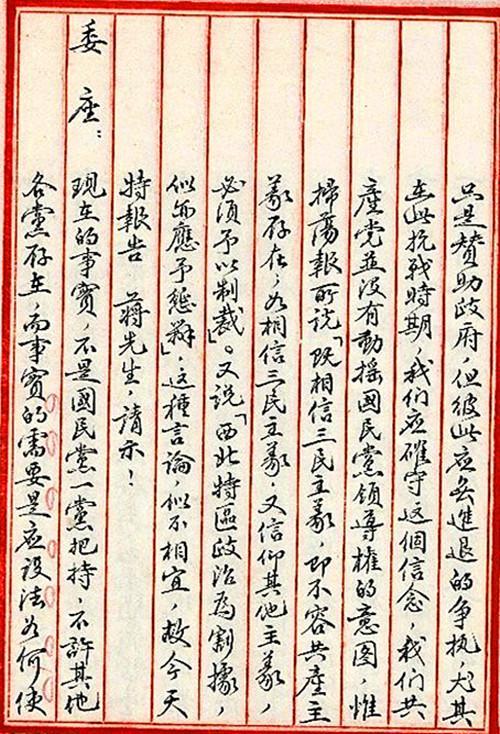 只是贊助政府，但彼此应無進退的争执，尤其
在此抗战時期，我们应確守这個信念，我们共
產党並没有動摇國民黨领導權的意图，惟
掃蕩報所说「既相信三民主義，即不容共產主
義存在，如相信三民主義，又信仰其他主義，
必須予以制裁」。又说「西北特區政治為割據，
似亦應予懲辦」，这種言論，似不相宜，故今天
特報告 蔣先生，請示！
委座：現在的事實，不是國民黨一黨把持，不許其他
各黨存在，而事實的需要是应设法如何使